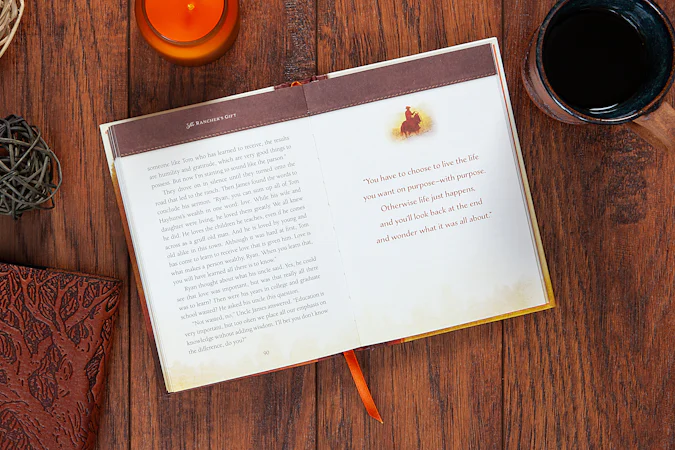 The RANCHER'S GIFT
someone like Tom, who has learned to receive, the results
are humility and gratitude, which are very good things to
possess. But now I'm starting to sound like the parson."
They drove on in silence until they turned onto the
road that led to the ranch. Then James found the words to
conclude his sermon. "Ryan, you can sum up all of Tom
Hepburn's wealth in one word: love. While his wife and
daughter were living, he loved them greatly. We all know
he did. He loves the children he teaches, even if he comes
across as a gruff old man. And he is loved by young and
old alike in this town. Although it was hard at first, Tom
has come to learn to receive love that is given him. Love is
what makes a person wealthy, Ryan. When you learn that,
you will have learned all there is to know."
Ryan thought about what his uncle said. Yes, he could
see that love was important, but was that really all there
was to learn? Then were his years in college and graduate
school wasted? He asked his uncle this question.
"Not wasted, no," Uncle James answered. "Education is
very important, but too often we place all our emphasis on
knowledge without adding wisdom. I'll bet you don't know
the difference, do you?"
90
"You have to choose to live the life
you want on purpose—with purpose.
Otherwise life just happens,
and you'll look back at the end
and wonder what it was all about."